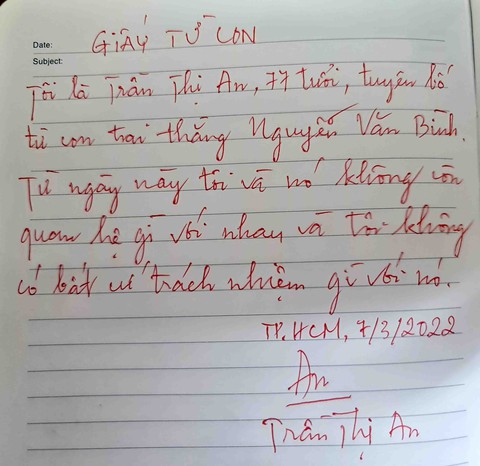 Date:
GIẤY TỪ CON
Subject:
Tôi là Trần Thị An, 77 tuổi, tuyên bố
từ con trai thằng Nguyễn Văn Bình.
Từ ngày này tôi và nó không còn
quan hệ gì với nhau và tôi không
có bất cứ trách nhiệm gì với nó.
TP. HCM, 7/3/2022
An
Trần Thị An